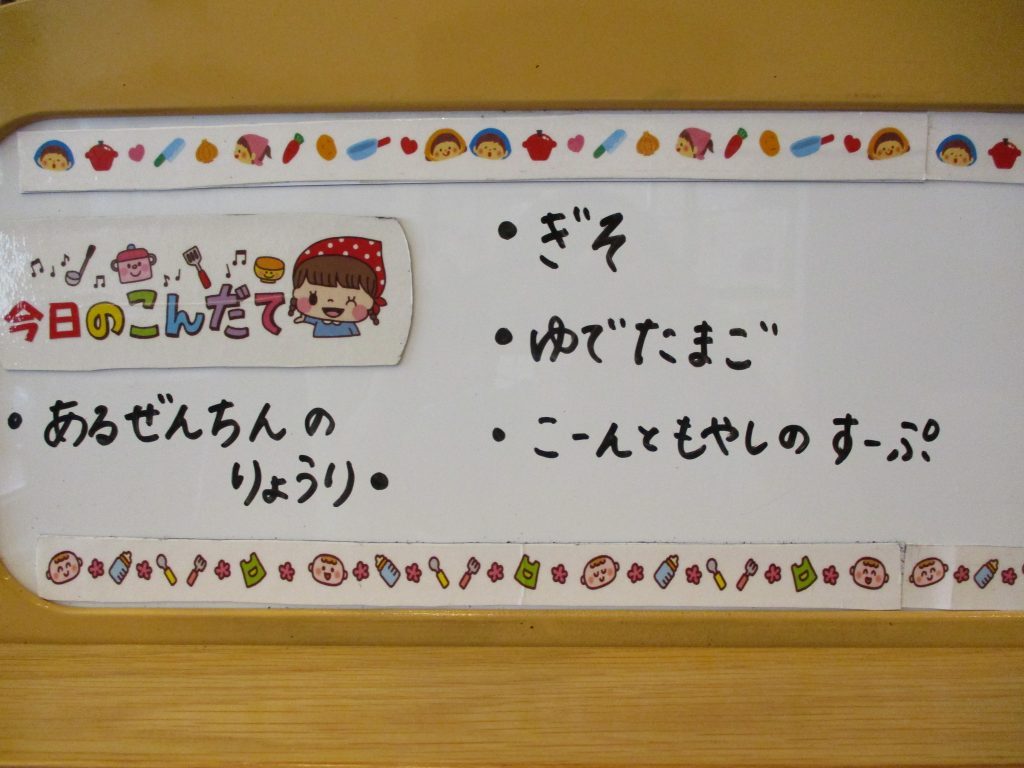 今日のこんだて
・あるぜんちんの
りょうり・
・ぎそ
・ゆでたまご
・こーんともやしのすーぷ